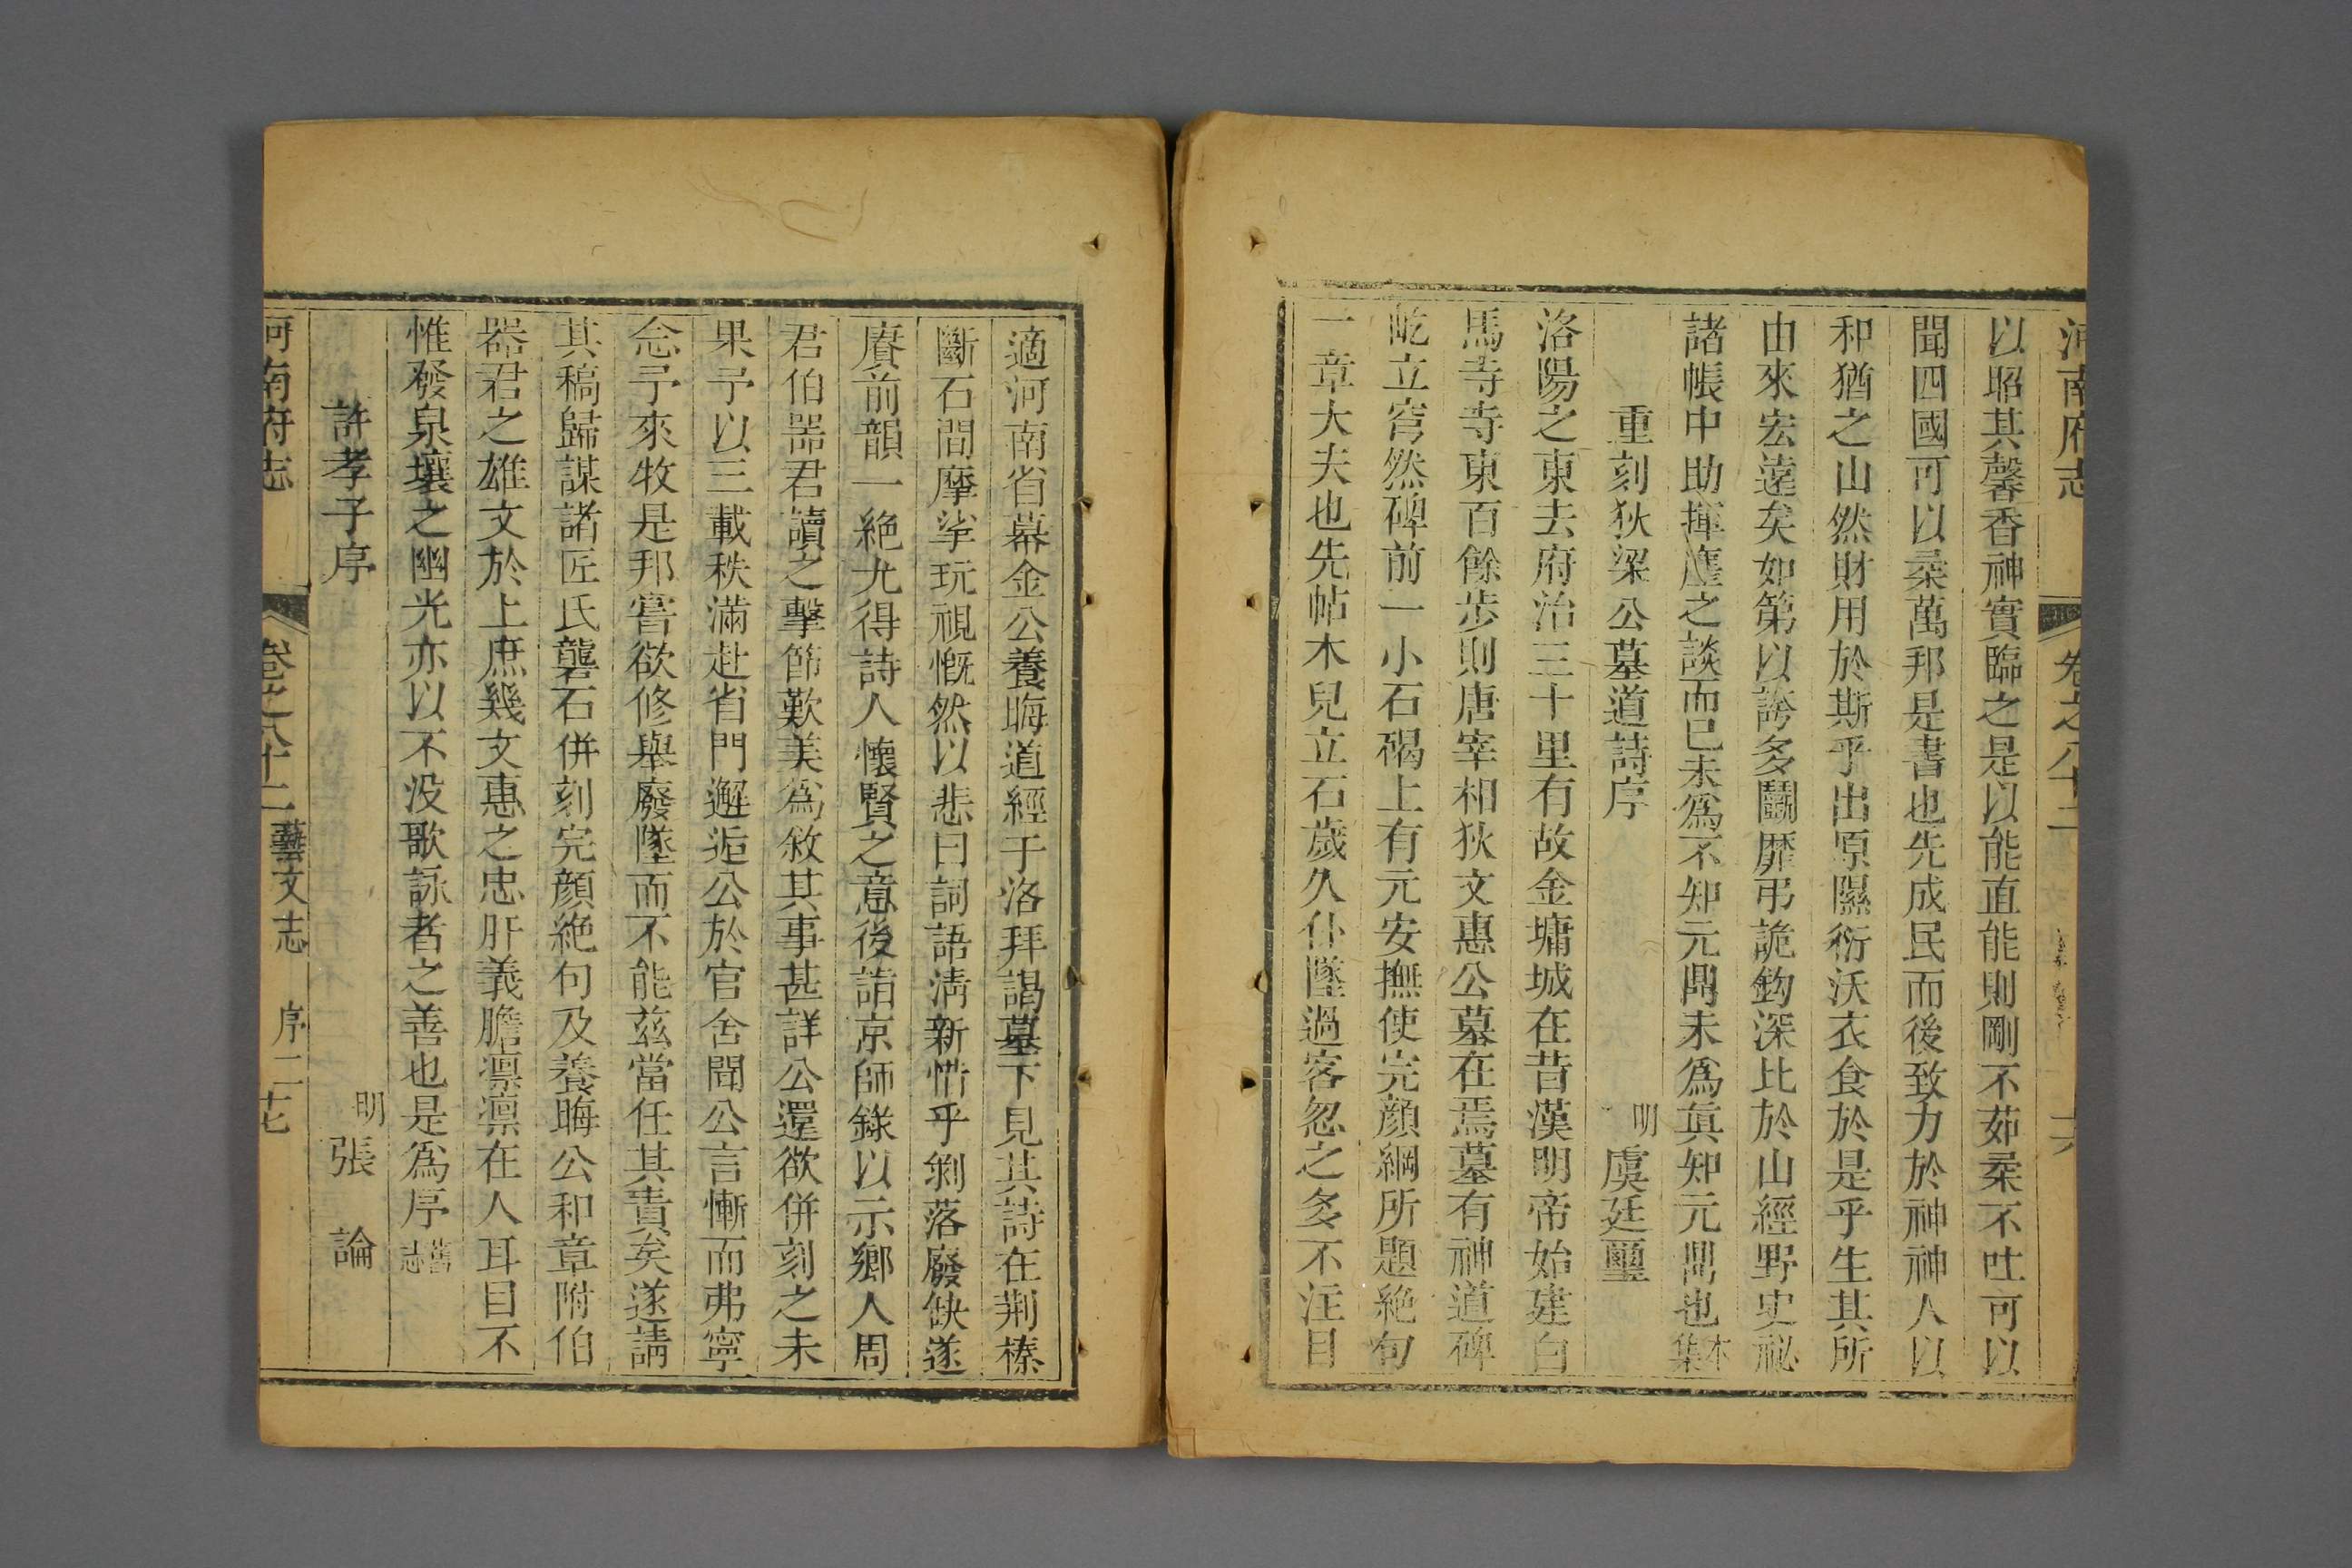 河南府志 卷之八十二 十六
以昭其馨香神實臨之是以能直能則剛不茹柔不吐可以
聞四國可以柔萬邦是書也先成民而後致力於神神人以
和猶之山然財用於斯乎出原隰衍沃衣食於是乎生其所
由來宏遠矣如第以誇多鬭靡弔詭鈎深比於山經野史祕
諸帳中助揮麈之談而已未爲不知元門未爲眞知元門也本集
重刻狄梁公墓道詩序 明虞廷璽
洛陽之東去府治三十里有故金墉城在昔漢明帝始建白
馬寺寺東百餘步則唐宰相狄文惠公墓在焉墓有神道碑
屹立穹然碑前一小石碣上有元安撫使完顏綱所題絶句
一章大夫也先帖木兒立石歲久仆墜過客忽之多不注目
適河南省幕金公養晦道經于洛拜謁墓下見其詩在荆榛
斷石間摩挲玩視慨然以悲曰詞語淸新惜乎剝落廢缺遂
賡前韻一絶尤得詩人懷賢之意後詣京師錄以示鄉人周
君伯器君讀之擊節歎美爲敘其事甚詳公還欲併刻之未
果予以三載秩滿赴省門邂逅公於官舍聞公言慚而弗寧
念予來牧是邦嘗欲修舉廢墜而不能兹當任其責矣遂請
其稿歸謀諸匠氏礱石併刻完顏絶句及養晦公和章附伯
器君之雄文於上庶幾文惠之忠肝義膽凛凛在人耳目不
惟發泉壤之幽光亦以不没歌詠者之善也是爲序舊志
許孝子序 明張論
河南府志 卷之八十二藝文志 序二 十七